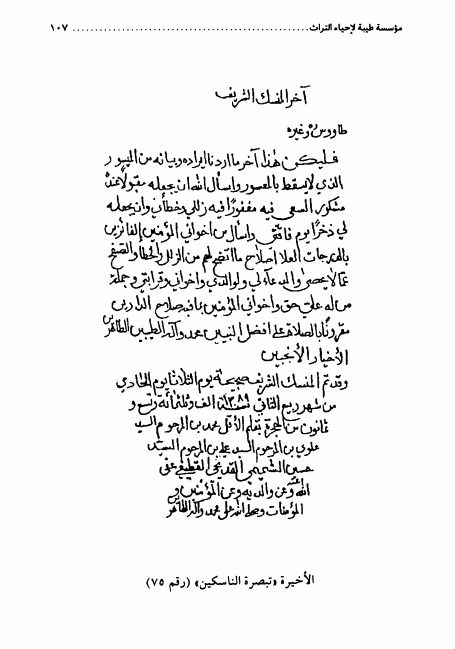 مؤسسة طيبة لإحياء التراث ................................................ ١٠٧
آخر المنسك الشريف
طاووس وغيره
فليكن هذا آخر ما اردنا ايراده وبيانه من الميسور
الذي لا يسقط بالمعسور واسأل الله ان يجعله مقبولا عنده
مشكور السعي فيه مغفورا فيه زللي وخطأي وان يجعله
لي ذخرا يوم فاقتي واسأل من اخواني المؤمنين الفائزين
بالدرجات العلا اصلاح ما اتضح لهم من الزلل والخطأ والصفح
عما لا يحصى والدعاء لي ولوالدي واخواني وقرابتي وجملة
من له علي حق واخواني المؤمنين بما فيه صلاح الدارين
مقرونا بالصلاة على افضل النبيين محمد وآله الطيبين الطاهرين
الأخيار الأنجبين
وقد تم المنسك الشريف صبيحة يوم الثلاثا يوم الحادي
من شهر ربيع الثاني سنة ١٣٨٩ الف وثلثمائة وتسع و
ثمانون من الهجرة بقلم الأقل محمد بن المرحوم السيد
علوي بن المرحوم السيد علي بن المرحوم السيد
حسين القديحي القطيفي عفى
الله عنه وعن والديه وعن المؤمنين و
المؤمنات وصلى الله على محمد وآله الطاهرين
الأخيرة «تبصرة الناسكين» (رقم ٧٥)